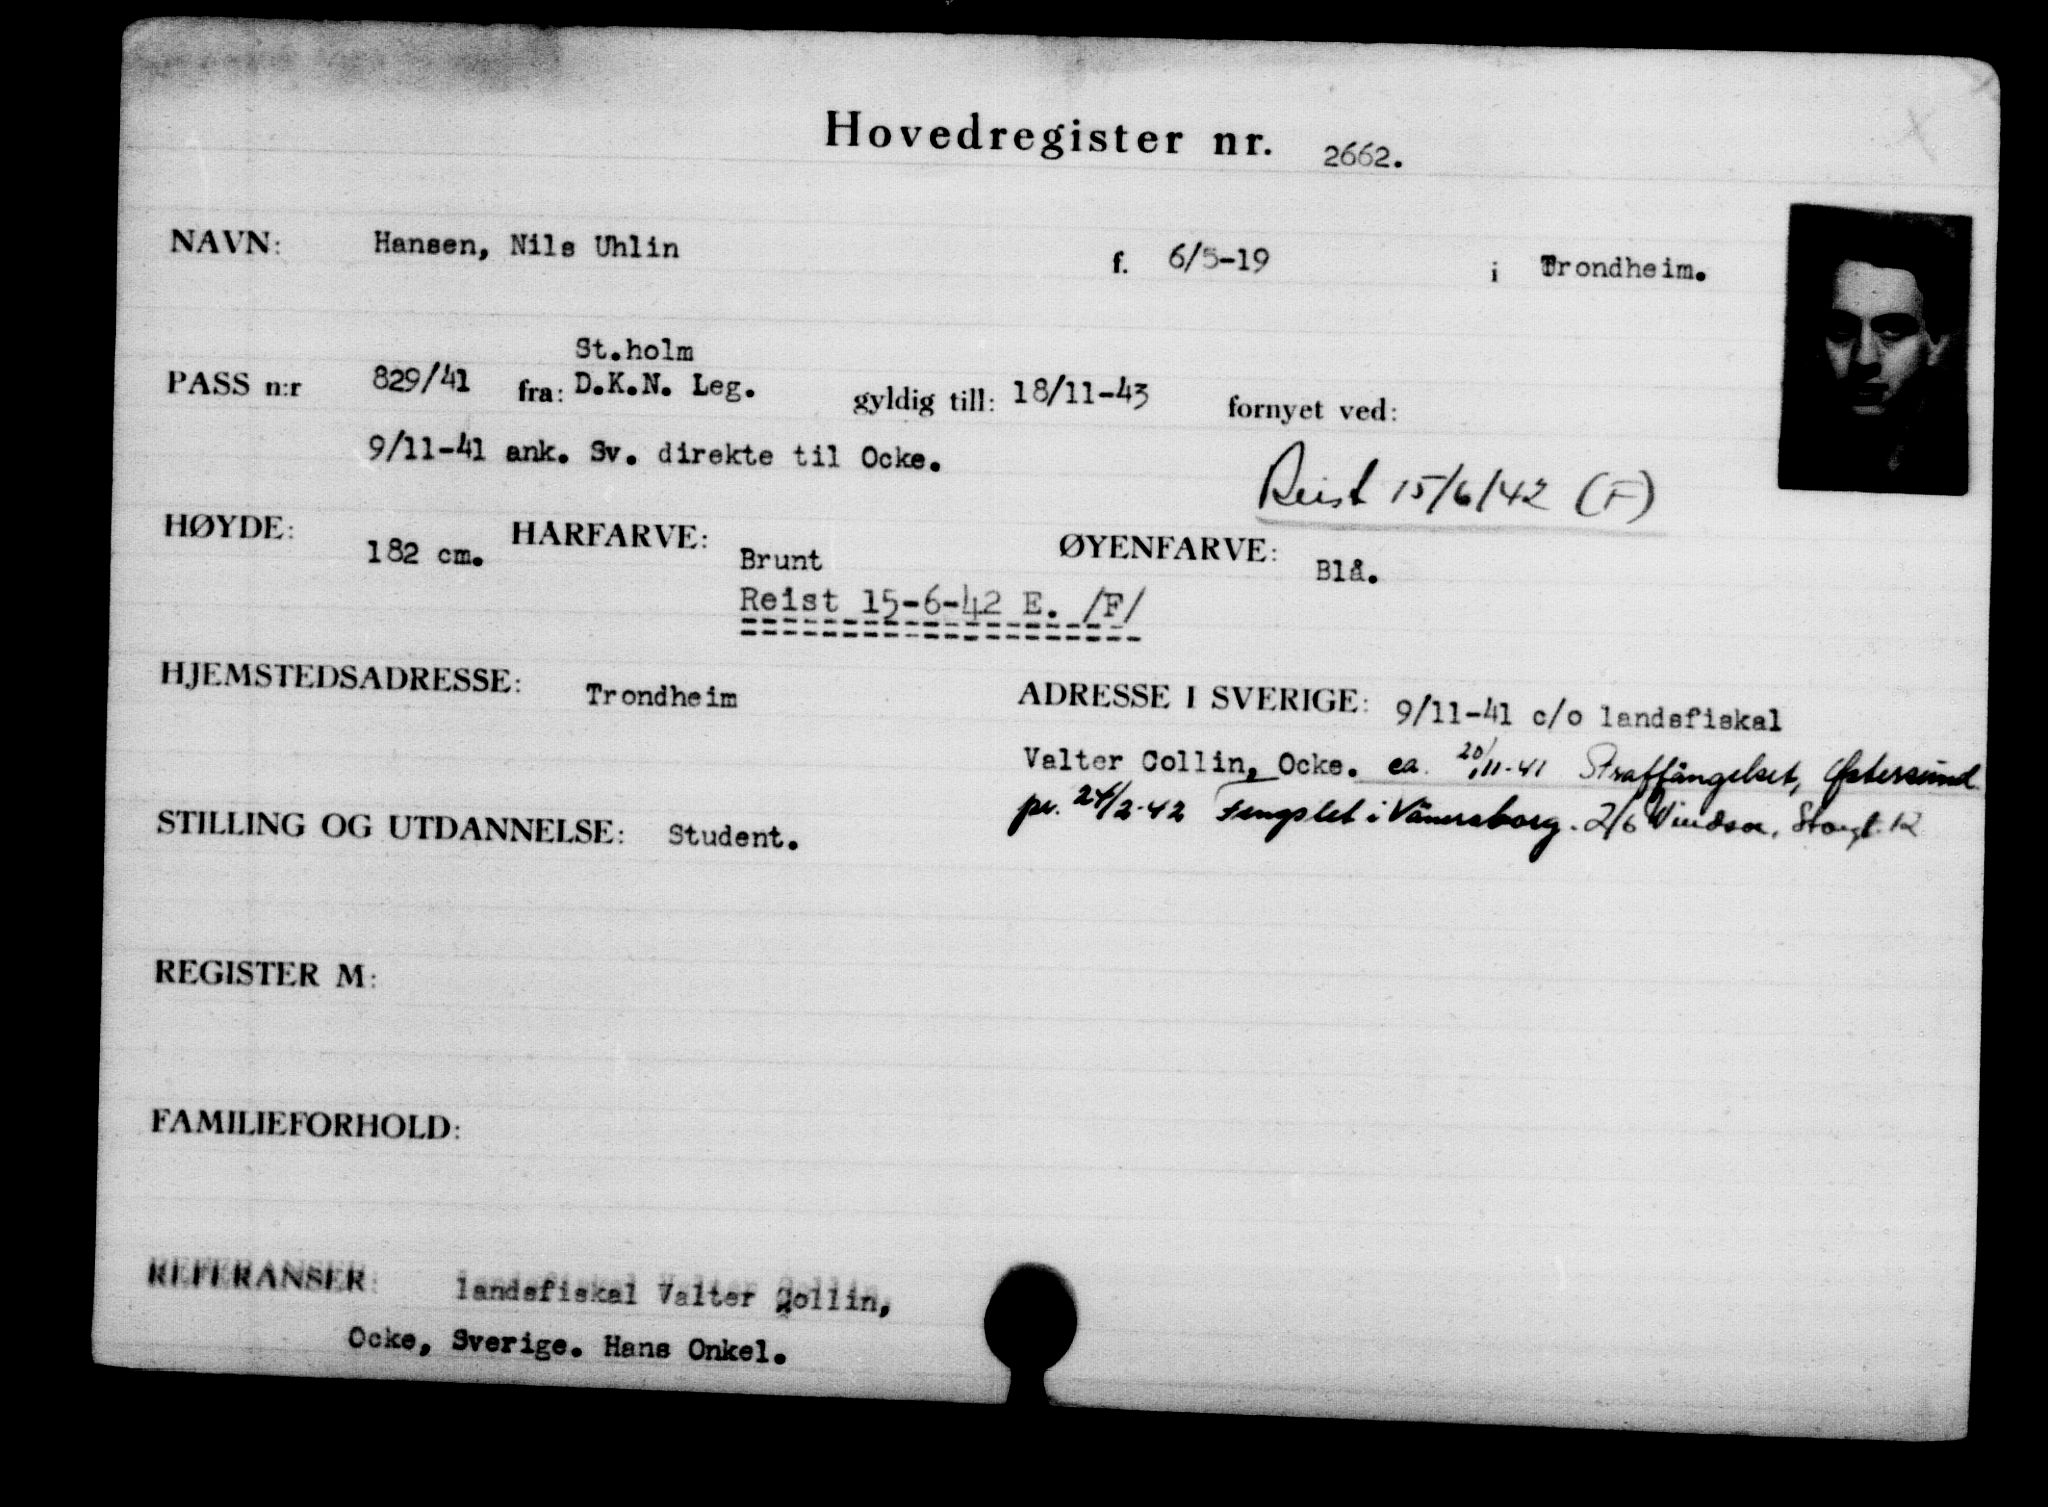 Hovedregister nr. 2662.
NAVN: Hansen, Nils Uhlin f. 6/5-19 i Trondheim.
St.holm
PASS n:r 829/41 fra: D.K.N. Leg. gyldig till: 18/11-43 fornyet ved:
9/11-41 ank. Sv. direkte til Ocke.
Reist 15/6/42 (F)
HØYDE: 182 cm. HARFARVE: Brunt ØYENFARVE: Blå.
Reist 15-6-42 E. /F/
HJEMSTEDSADRESSE: Trondheim ADRESSE I SVERIGE: 9/11-41 c/o landsfiskal
Valter Collin, Ocke. ca. 20/11-41 Straffängelset, Østersund
pr. 24/2-42 Fengslet i Vänersborg. 2/6 Windsor, Storgt. 12
STILLING OG UTDANNELSE: Student.
REGISTER M:
FAMILIEFORHOLD:
REFERANSER: landsfiskal Valter Collin,
Ocke, Sverige. Hans Onkel.